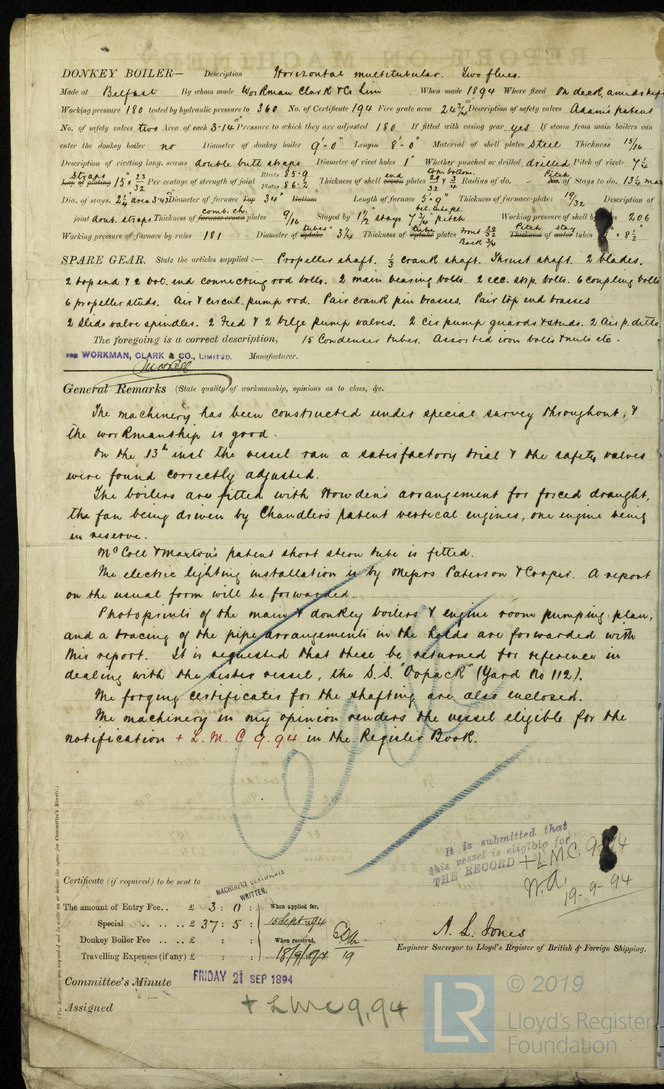 DONKEY BOILER— Description Horizontal multitubular. Two flues.
Made at Belfast By whom made Workman Clark & Co Lim When made 1894 Where fixed On deck, amidships
Working pressure 180 tested by hydraulic pressure to 360 No. of Certificate 194 Fire grate area Description of safety valves Adams patent
No. of safety valves two Area of each 3.14" Pressure to which they are adjusted 180 If fitted with easing gear yes If steam from main boilers can
enter the donkey boiler no Diameter of donkey boiler 9'-0" Length 8'-0" Material of shell plates Steel Thickness 15/16
Description of riveting long. seams double butt straps Diameter of rivet holes 1" Whether punched or drilled drilled Pitch of rivets
Straps Per centage of strength of joint Rivets 85.9 Plates 86.2 Thickness of shell end plates Radius of do. Pitch of Stays to do.
Dia. of stays. Diameter of furnace Top 34" Bottom Length of furnace 5'-9" Thickness of furnace plates 19/32 Description of
joint doub. straps Thickness of comb. ch. plates 9/16 Stayed by 1 1/2" stays pitch Working pressure of shell by rules 206
Working pressure of furnace by rules 181 Diameter of tubes 3 1/4 Thickness of tube plates Front Back 3/4 Pitch stay tubes 8 1/2"
SPARE GEAR. State the articles supplied:— Propeller shaft. 1/3 crank shaft. Thrust shaft. 2 blades.
2 top end & 2 bot. end connecting rod bolts. 2 main bearing bolts. 2 ecc. strp. bolts. 6 coupling bolts
6 propeller studs. Air & circul. pump rod. Pair crank pin brasses. Pair top end brasses
2 Slide valve spindles. 2 Feed & 2 bilge pump valves. 2 cir pump guards & studs. 2 Air p. ditto
The foregoing is a correct description, 15 Condenser tubes. Assorted iron bolts & nuts etc.
FOR WORKMAN, CLARK & CO., LIMITED. Manufacturer.
General Remarks (State quality of workmanship, opinions as to class, &c.
The machinery has been constructed under special survey throughout, &
the workmanship is good.
On the 13th inst the vessel ran a satisfactory trial & the safety valves
were found correctly adjusted.
The boilers are fitted with Howden's arrangement for forced draught,
the fan being driven by Chandler's patent vertical engines, one engine being
in reserve.
McColl & Maxton's patent short stern tube is fitted.
The electric lighting installation is by Messrs Paterson & Cooper. A report
on the usual form will be forwarded.
Photoprints of the main & donkey boilers & engine room pumping plan,
and a tracing of the pipe arrangements in the holds are forwarded with
this report. It is requested that these be returned for reference in
dealing with the sister vessel, the S.S. "Oopack" (Yard No 112).
The forging certificates for the shafting are also enclosed.
The machinery in my opinion renders the vessel eligible for the
notification + L.M.C 9.94 in the Register Book.
It is submitted that
this vessel is eligible for
THE RECORD + LMC. 9.94
19-9-94
Certificate (if required) to be sent to
MACHINERY CERTIFICATE
WRITTEN.
The amount of Entry Fee.. £ 3 : 0 : When applied for,
Special .. .. £ 37 : 5 : 15 Sept 1894
Donkey Boiler Fee .. .. £ : : When received,
Travelling Expenses (if any) £ : : 18/9/1894
A. L. Jones
Engineer Surveyor to Lloyd's Register of British & Foreign Shipping.
Committee's Minute FRIDAY 21 SEP 1894
Assigned + LMC 9,94
© 2019
LR
Lloyd's Register
Foundation